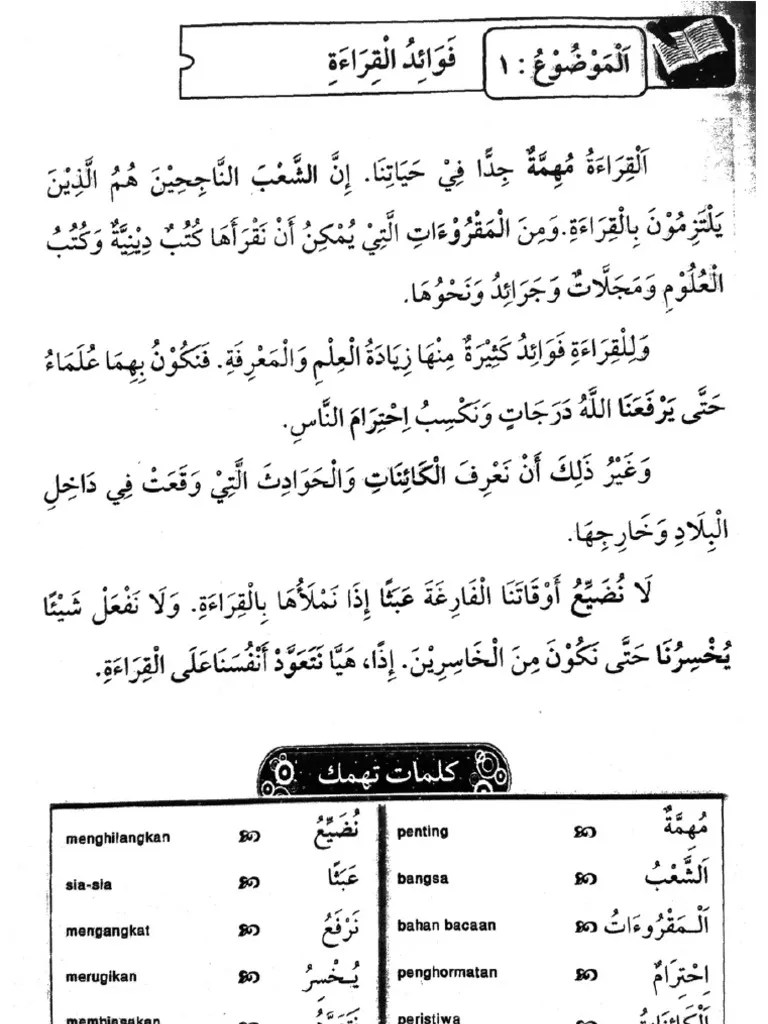 اَلْمَوْضُوْعُ : ١ فَوَائِدُ الْقِرَاءَةِ
اَلْقِرَاءَةُ مُهِمَّةٌ جِدًّا فِيْ حَيَاتِنَا. إِنَّ الشَّعْبَ النَّاجِحِيْنَ هُمُ الَّذِيْنَ
يَلْتَزِمُوْنَ بِالْقِرَاءَةِ. وَمِنَ الْمَقْرُوْءَاتِ الَّتِيْ يُمْكِنُ أَنْ نَقْرَأَهَا كُتُبٌ دِيْنِيَّةٌ وَكُتُبُ
الْعُلُوْمِ وَمَجَلَّاتٌ وَجَرَائِدُ وَنَحْوُهَا.
وَلِلْقِرَاءَةِ فَوَائِدُ كَثِيْرَةٌ مِنْهَا زِيَادَةُ الْعِلْمِ وَالْمَعْرِفَةِ. فَنَكُوْنُ بِهِمَا عُلَمَاءُ
حَتَّى يَرْفَعَنَا اللَّهُ دَرَجَاتٍ وَنَكْسِبُ اِحْتِرَامَ النَّاسِ.
وَغَيْرُ ذَلِكَ أَنْ نَعْرِفَ الْكَائِنَاتِ وَالْحَوَادِثَ الَّتِيْ وَقَعَتْ فِي دَاخِلِ
الْبِلَادِ وَخَارِجِهَا.
لَا نُضَيِّعُ أَوْقَاتَنَا الْفَارِغَةَ عَبَثًا إِذَا نَمْلَأُهَا بِالْقِرَاءَةِ. وَلَا نَفْعَلْ شَيْئًا
يُخْسِرُنَا حَتَّى نَكُوْنَ مِنَ الْخَاسِرِيْنَ. إِذًا، هَيَّا نَتَعَوَّدْ أَنْفُسَنَا عَلَى الْقِرَاءَةِ.
كلمات تهمك
مُهِمَّةٌ penting
اَلشَّعْبُ bangsa
اَلْمَقْرُوءَاتُ bahan bacaan
اِحْتِرَامٌ penghormatan
اَلْكَائِنَاتُ peristiwa
نُضَيِّعُ menghilangkan
عَبَثًا sia-sia
نَرْفَعُ mengangkat
يُخْسِرُ merugikan
نَتَعَوَّدُ membiasakan